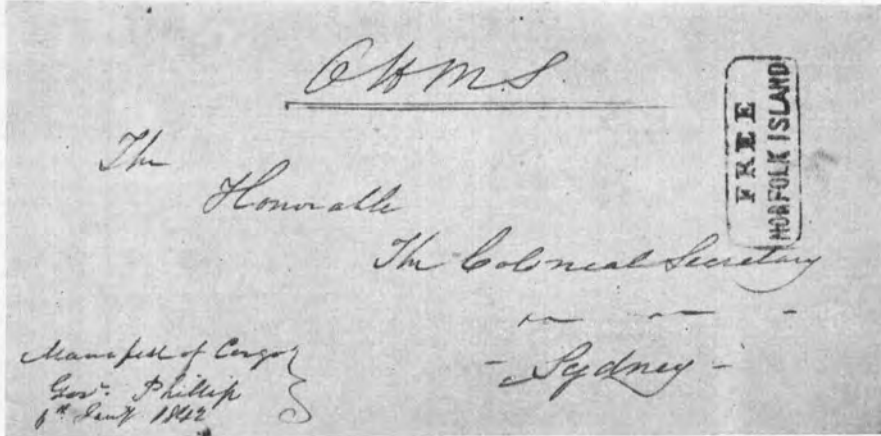 O H M S.
FREE
NORFOLK ISLAND
The
Honorable
The Colonial Secretary
Sydney
Manifest of Cargo
Govr. Phillip
6th Jany 1842